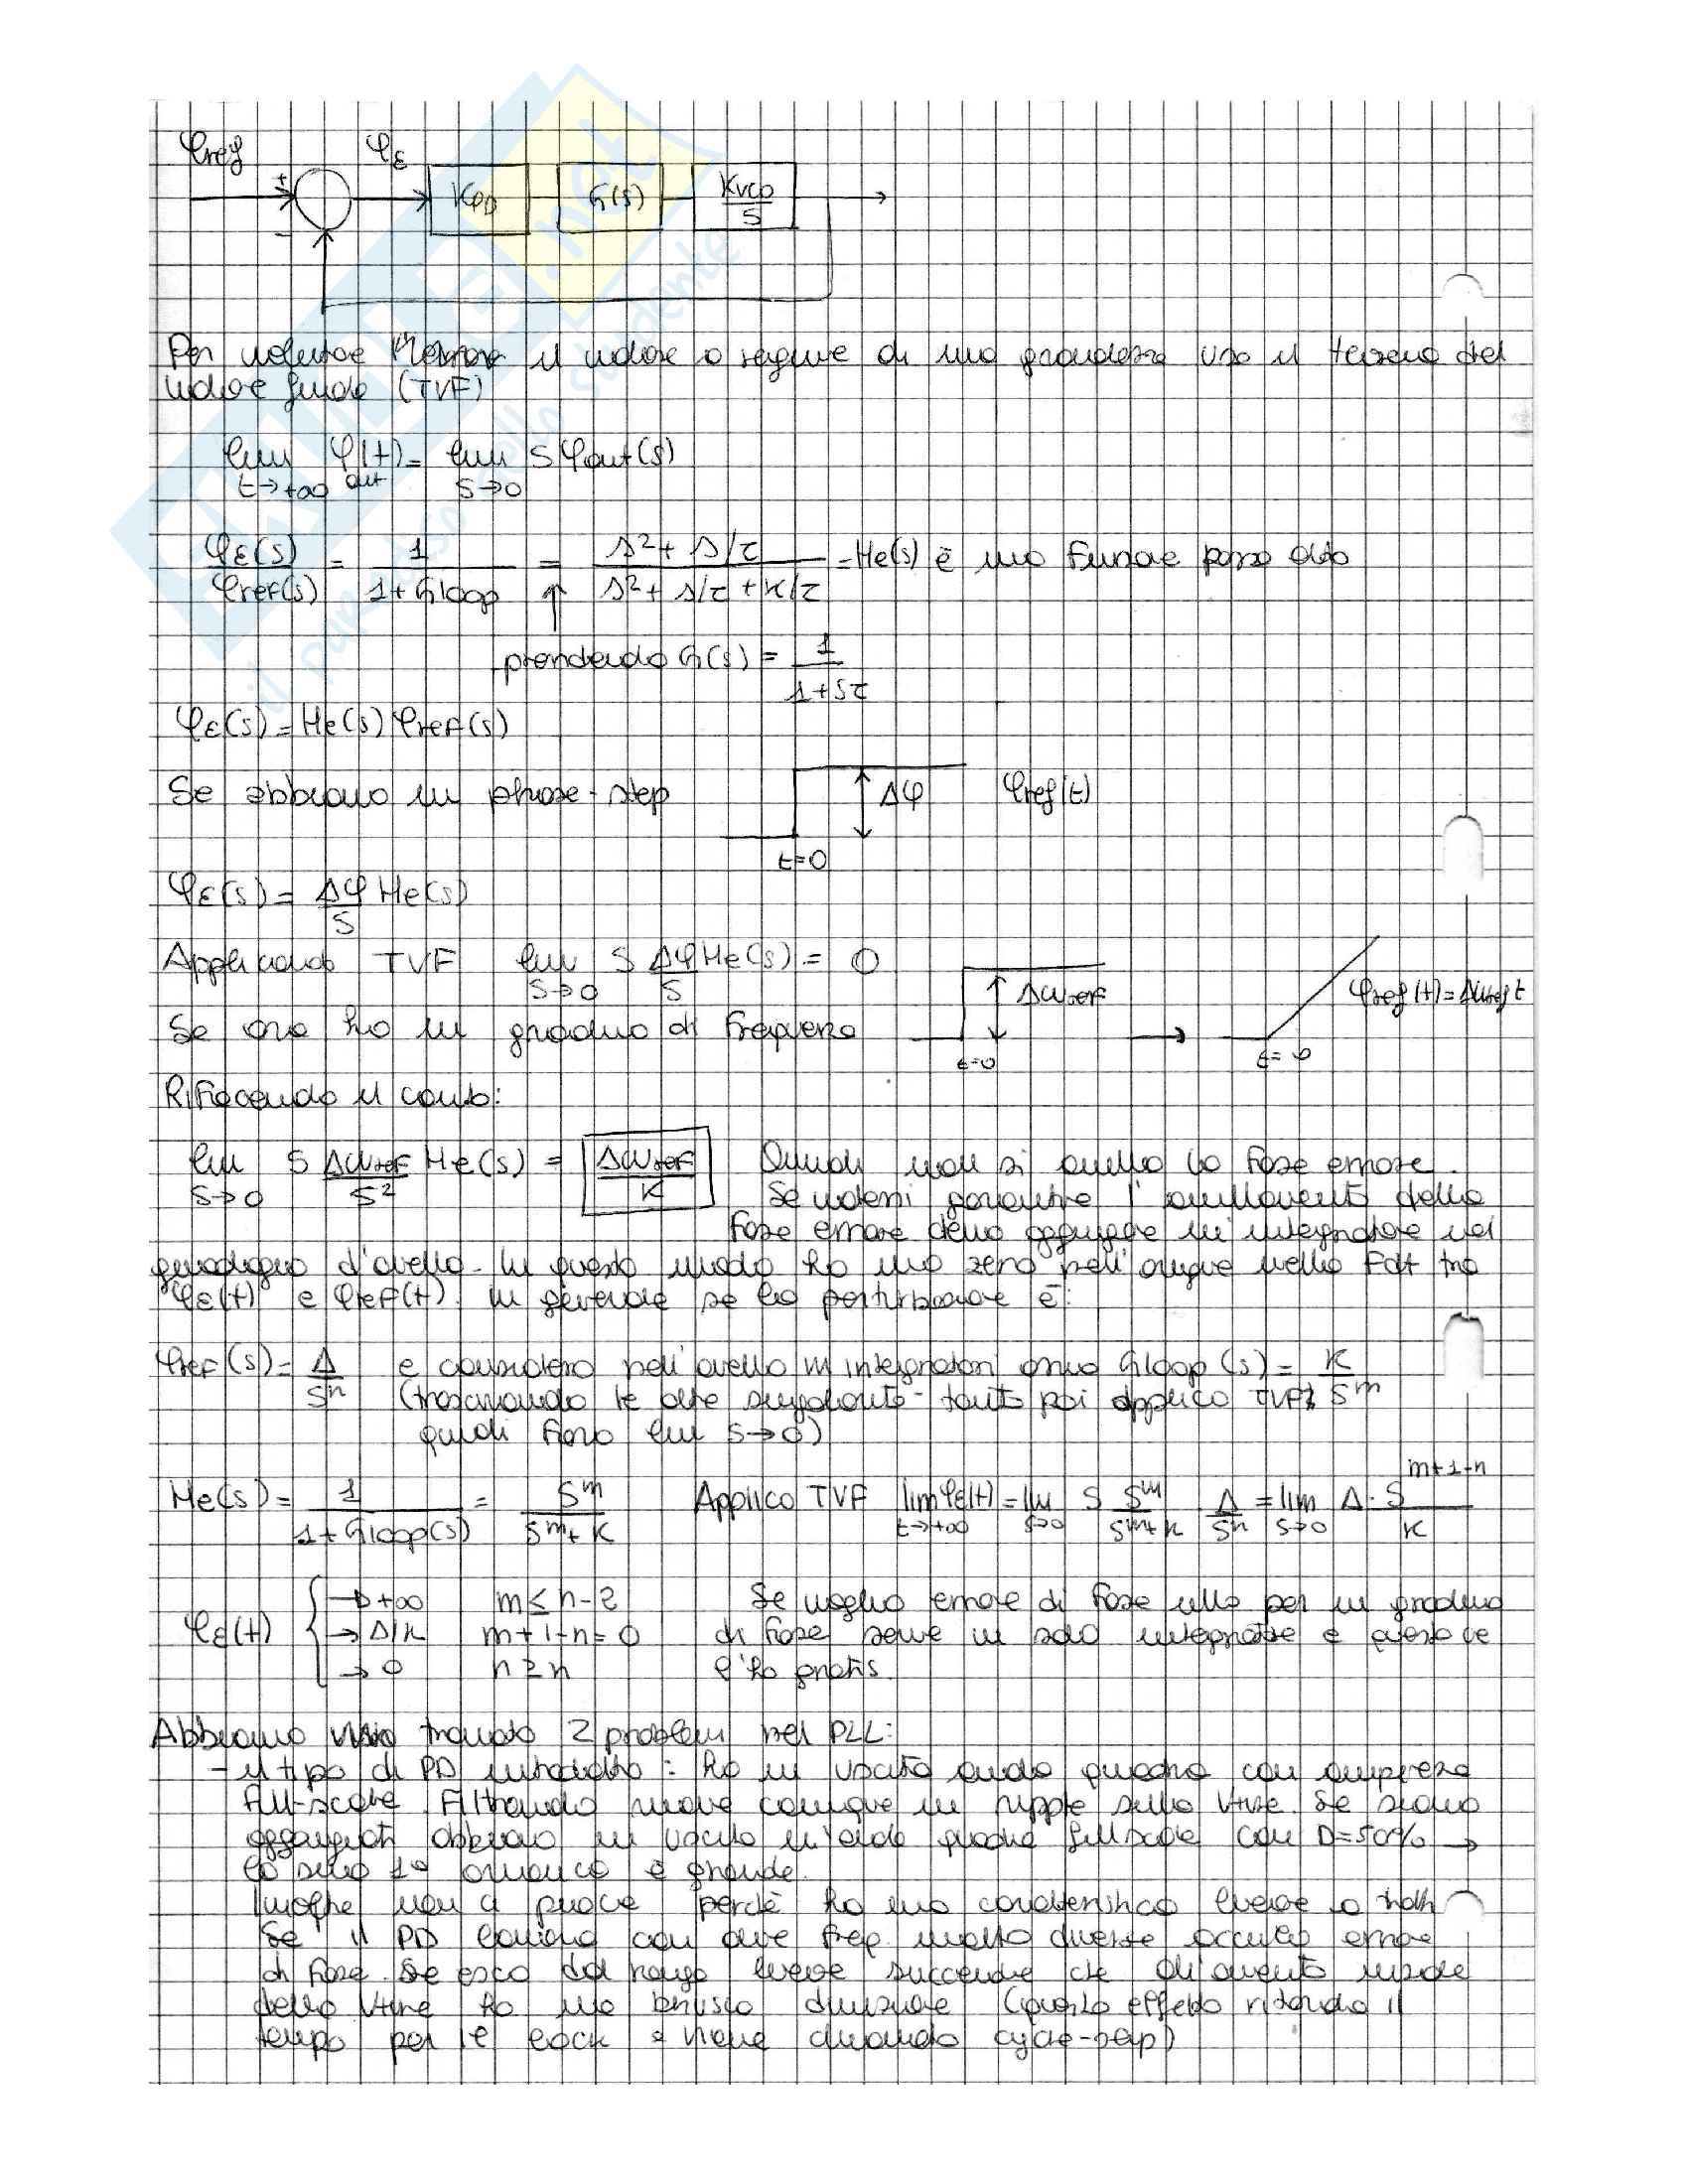 φref φε
+ - KPD G(s) Kvco/s
Per valutare il valore a regime di una grandezza uso il teorema del
valore finale (TVF)
lim t→+∞ φout(t) = lim s→0 Sφout(s)
φε(s)/φref(s) = 1/(1+Gloop) = (s²+s/τ)/(s²+s/τ+K/τ) = He(s) è una funzione passa alto
prendendo G(s) = 1/(1+sτ)
φε(s) = He(s) φref(s)
Se abbiamo un phase-step Δφ φref(t)
t=0
φε(s) = Δφ/S He(s)
Applicando TVF lim s→0 S Δφ/S He(s) = 0 Δωref φref(t)=Δωref t
Se ora ho un gradino di frequenza t=0 t=φ
Rifacendo il conto:
lim s→0 S Δωref/S² He(s) = Δωref/K Quindi non si annulla la fase errore.
Se volessi garantire l'annullamento della
fase errore devo aggiungere un integratore nel
guadagno d'anello. In questo modo ho uno zero nell'origine nella Fdt tra
φε(t) e φref(t). In generale se la perturbazione è:
φref(s) = Δ/Sⁿ e considero nell'anello m integratori Gloop(s) = K/Sᵐ
(trascurando le altre singolarità - tanto poi applico TVF
quindi farò lim s→0)
He(s) = 1/(1+Gloop(s)) = Sᵐ/(Sᵐ+K) Applico TVF lim t→+∞ φε(t) = lim s→0 S Sᵐ/(Sᵐ+K) Δ/Sⁿ = lim s→0 Δ·S^(m+1-n)/K
φε(t) { →+∞ m≤n-2 Se voglio errore di fase nullo per un gradino
→Δ/K m+1-n=0 di fase serve un solo integratore e questo ce
→0 n≥n l'ho gratis.
Abbiamo trovato 2 problemi nel PLL:
- il tipo di PD : ho in uscita onda quadra con ampiezza
full-scale. Filtrando rimane comunque un ripple sulla Vtune. Se siamo
agganciati abbiamo in uscita un'onda quadra full scale con D=50% →
la sua 1ª armonica è grande.
Inoltre non ci piace perchè ho una caratteristica lineare a tratti
Se il PD lavora con due freq. molto diverse accumulo errore
di fase. Se esco dal range lineare succede che all'aumento
della Vtune ho una brusca diminuzione (questo effetto ritarda il
tempo per il lock e viene chiamato cycle-slip)